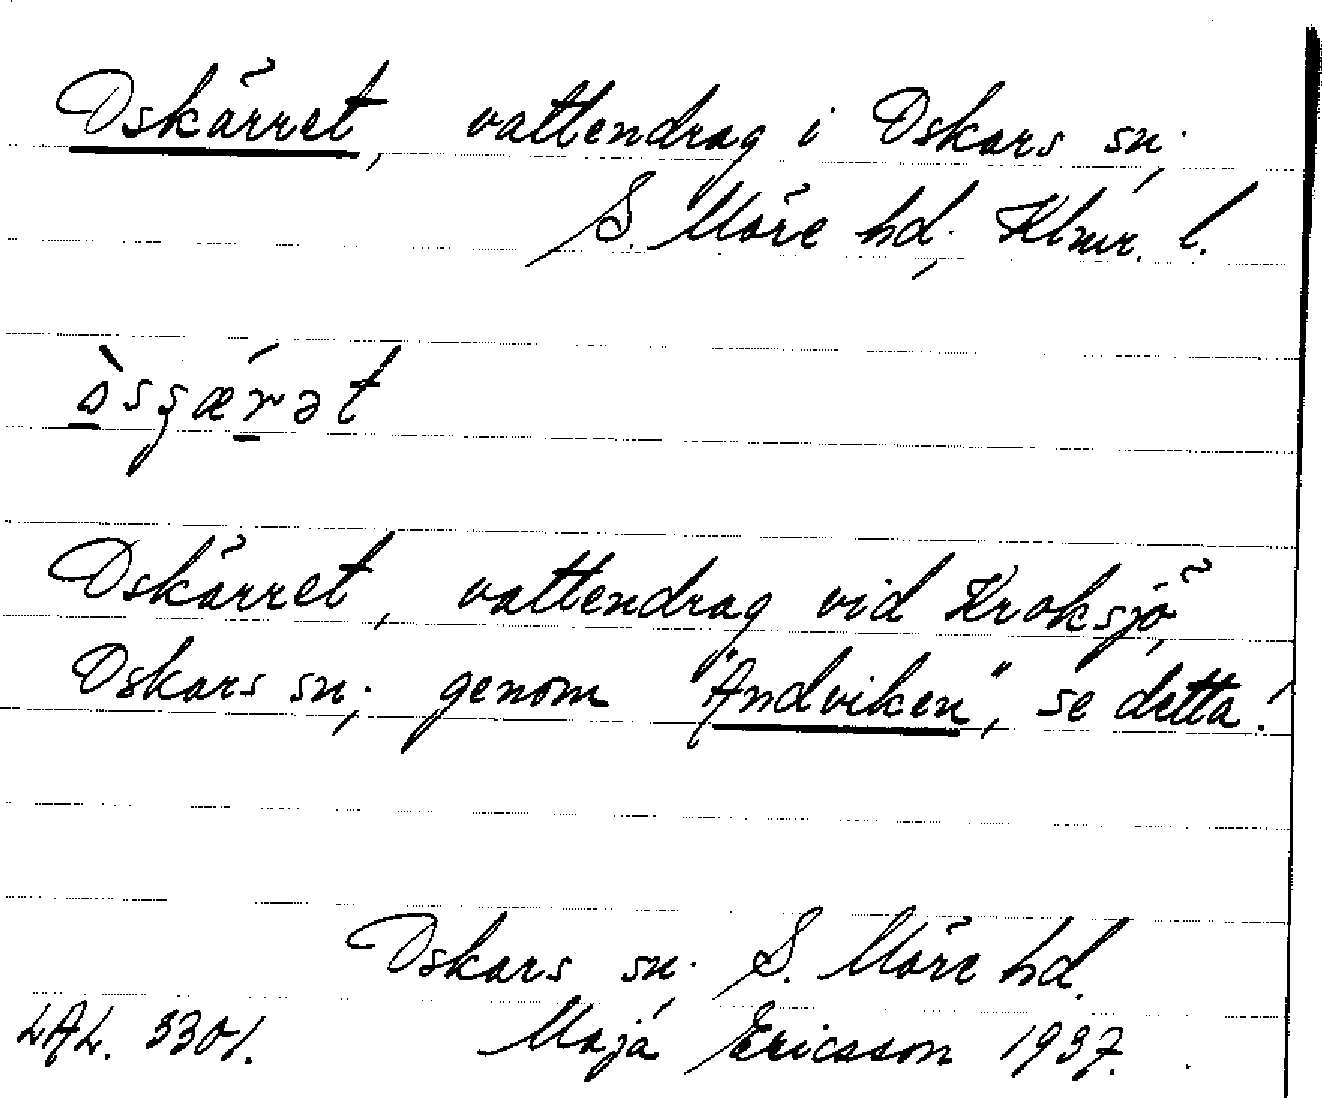 Oskärret, vattendrag i Oskars sn,
S. Möre hd, Klmr. l.
òsʂæŕət
Oskärret, vattendrag vid Kroksjö,
Oskars sn; genom "Andviken", se detta!
Oskars sn. S. Möre hd.
LAL. 3301. Maja Ericsson 1937.